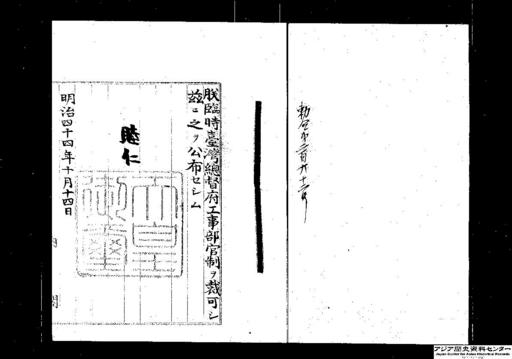 勅令第二百六十二号
朕臨時臺灣總督府工事部官制ヲ裁可シ
茲ニ之ヲ公布セシム
睦仁
明治四十四年十月十四日
アジア歴史資料センター
Japan Center for Asian Historical Records